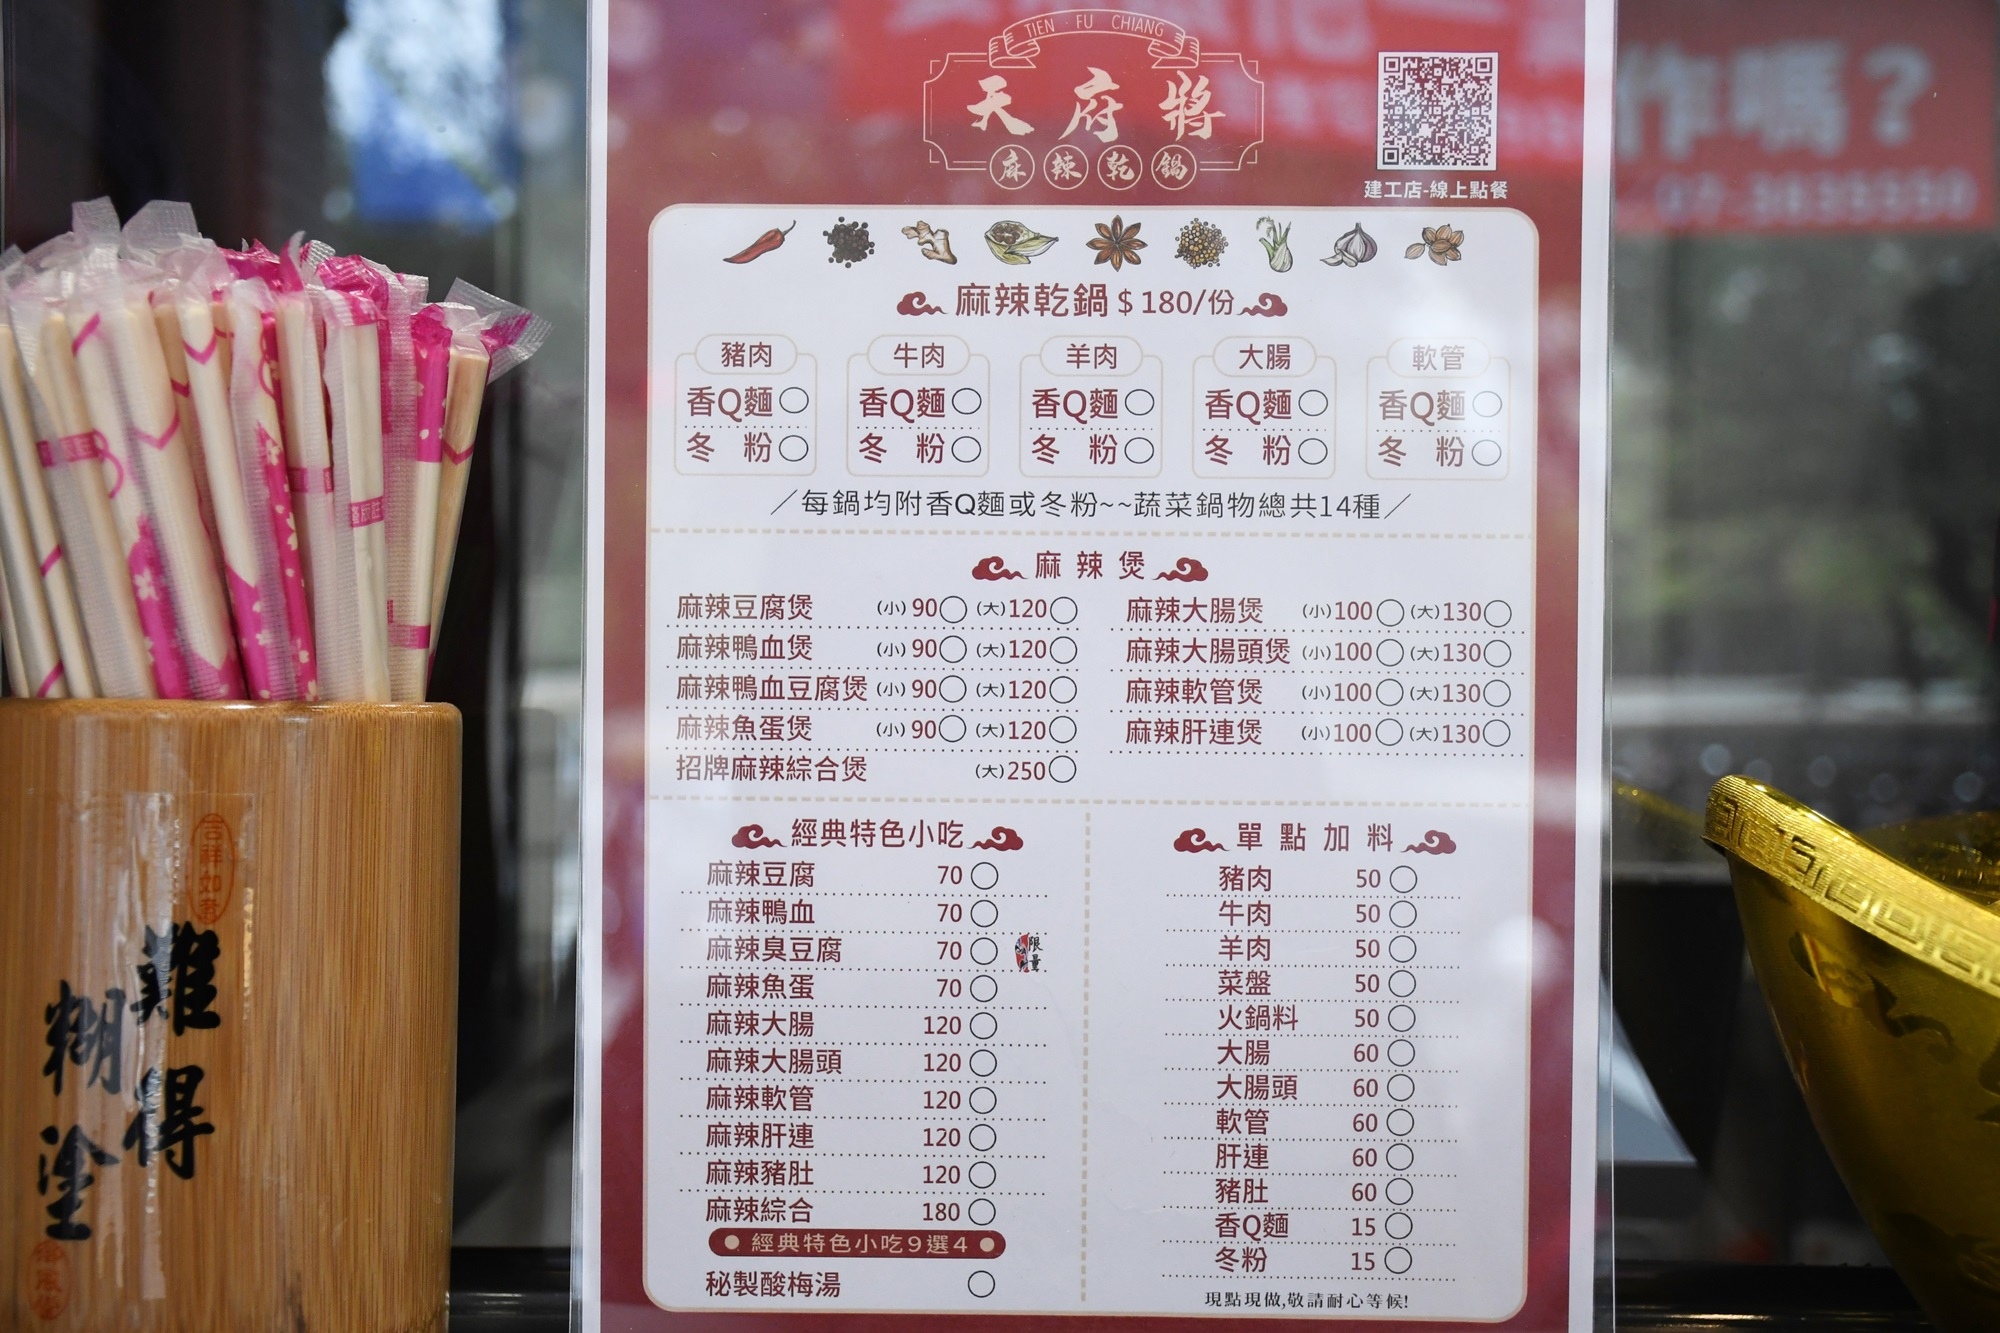 TIEN FU CHIANG
天府將
麻辣乾鍋
建工店-線上點餐
作嗎？
麻辣乾鍋 $180/份
豬肉 牛肉 羊肉 大腸 軟管
香Q麵 香Q麵 香Q麵 香Q麵 香Q麵
冬粉 冬粉 冬粉 冬粉 冬粉
／每鍋均附香Q麵或冬粉~~蔬菜鍋物總共14種／
麻辣煲
麻辣豆腐煲 (小)90 (大)120
麻辣鴨血煲 (小)90 (大)120
麻辣鴨血豆腐煲 (小)90 (大)120
麻辣魚蛋煲 (小)90 (大)120
招牌麻辣綜合煲 (大)250
麻辣大腸煲 (小)100 (大)130
麻辣大腸頭煲 (小)100 (大)130
麻辣軟管煲 (小)100 (大)130
麻辣肝連煲 (小)100 (大)130
經典特色小吃
麻辣豆腐 70
麻辣鴨血 70
麻辣臭豆腐 70 限量
麻辣魚蛋 70
麻辣大腸 120
麻辣大腸頭 120
麻辣軟管 120
麻辣肝連 120
麻辣豬肚 120
麻辣綜合 180
經典特色小吃9選4
秘製酸梅湯
單點加料
豬肉 50
牛肉 50
羊肉 50
菜盤 50
火鍋料 50
大腸 60
大腸頭 60
軟管 60
肝連 60
豬肚 60
香Q麵 15
冬粉 15
現點現做,敬請耐心等候!
吉祥如意
難得
糊塗